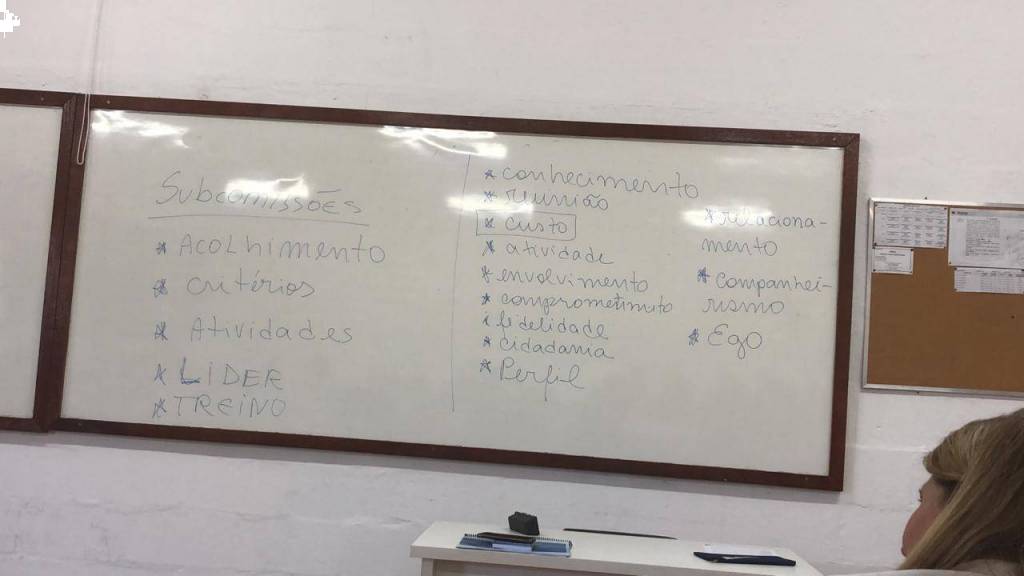 Subcomissões
* Acolhimento
* critérios
* Atividades
* LIDER
* TREINO
* conhecimento
* reunião
* custo
* atividade
* envolvimento
* comprometimento
* fidelidade
* cidadania
* Perfil
* relaciona-
mento
* companhei-
rismo
* Ego